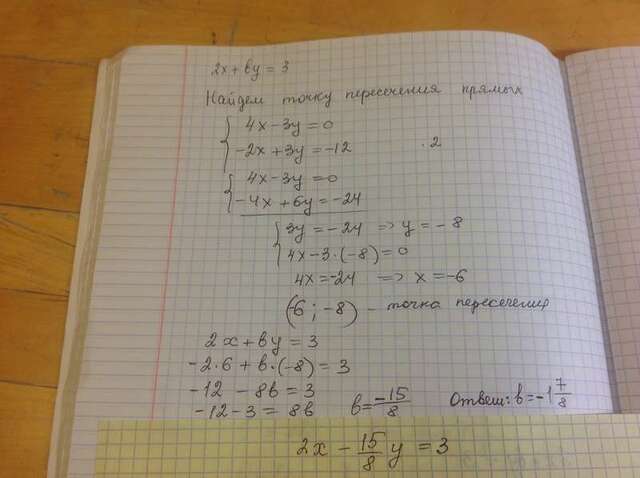 2x + by = 3
Найдем точку пересечения прямых
{ 4x - 3y = 0
-2x + 3y = -12 · 2
{ 4x - 3y = 0
-4x + 6y = -24
{ 3y = -24 => y = -8
4x - 3 · (-8) = 0
4x = -24 => x = -6
(-6 ; -8) - точка пересечения
2x + by = 3
-2·6 + b·(-8) = 3
-12 - 8b = 3
-12 - 3 = 8b b = -15/8 Ответ: b = -1 7/8
2x - 15/8 y = 3